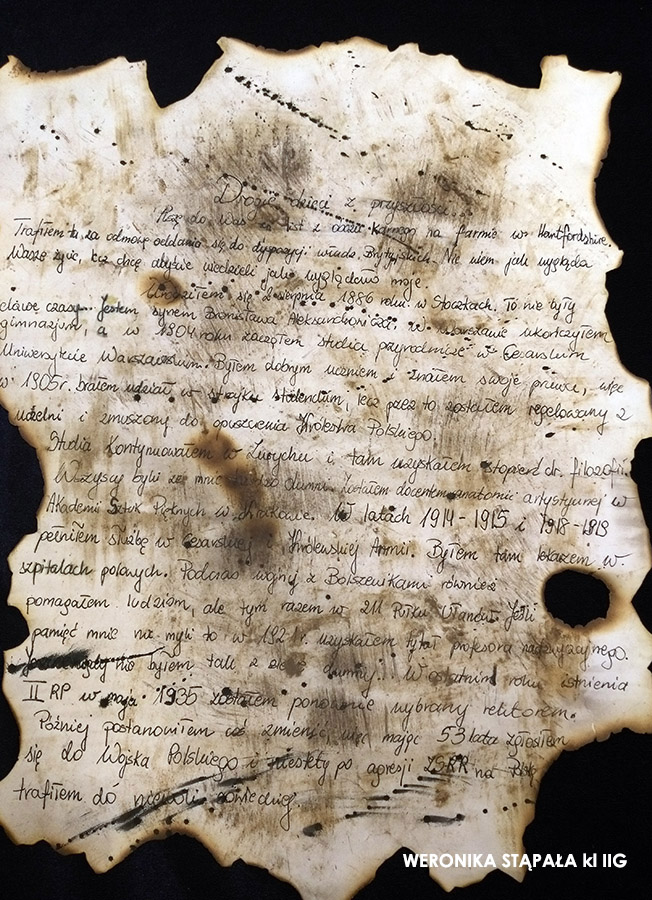 Drogie dzieci z przyszłości...
Piszę do was list z obozu karnego na farmie w Hantfordshire.
Trafiłem tu za odmowę oddania się do dyspozycji władz Brytyjskich. Nie wiem jak wygląda
Wasze życie, lecz chcę abyście wiedzieli jak wyglądało moje.
Urodziłem się 2 sierpnia 1886 roku w Stoczkach. To nie były
ciekawe czasy. Jestem synem Bronisława Aleksandrowicza, w Warszawie ukończyłem
gimnazjum, a w 1904 roku zacząłem studia przyrodnicze w Cesarskim
Uniwersytecie Warszawskim. Byłem dobrym uczniem i znałem swoje prawa, więc
w 1905r. brałem udział w strajku studentów, lecz przez to zostałem relegowany z
uczelni i zmuszony do opuszczenia Królestwa Polskiego.
Studia kontynuowałem w Zurychu i tam uzyskałem stopień dr. filozofii.
Wszyscy byli ze mnie bardzo dumni. Zostałem docentem anatomii artystycznej w
Akademii Sztuk Pięknych w Krakowie. W latach 1914-1915 i 1918-1919
pełniłem służbę w Cesarskiej i Królewskiej Armii. Byłem tam lekarzem w
szpitalach polowych. Podczas wojny z Bolszewikami również
pomagałem ludziom, ale tym razem w 211 Pułku Ułanów. Jeśli
pamięć mnie nie myli to w 1921r. uzyskałem tytuł profesora nadzwyczajnego.
nie byłem tak z siebie dumny... W ostatnim roku istnienia
II RP w maju 1935 zostałem ponownie wybrany rektorem.
Później postanowiłem coś zmienić, więc mając 53 lata zgłosiłem
się do Wojska Polskiego i niestety po agresji ZSRR na Polskę
trafiłem do niewoli sowieckiej.
WERONIKA STĄPAŁA kl IIG